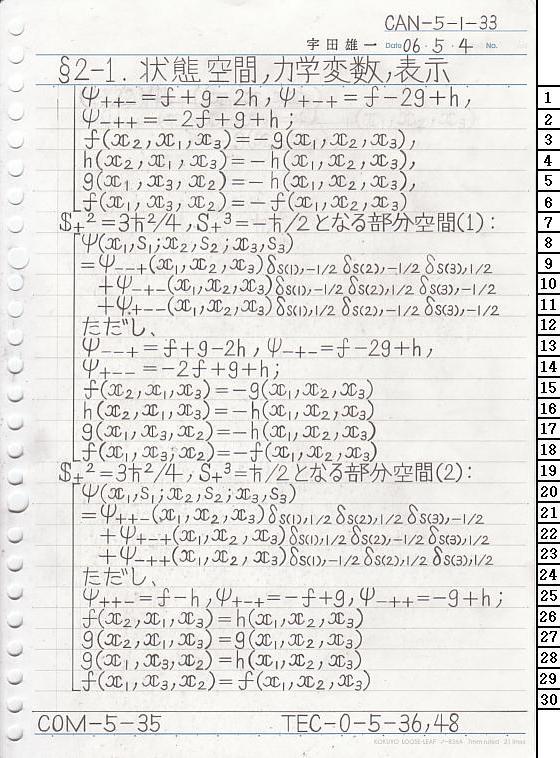 CAN-5-1-33
宇田雄一 Date 06・5・4 No.
§2-1. 状態空間,力学変数,表示
ψ₊₊₋=f+g-2h, ψ₊₋₊=f-2g+h,
ψ₋₊₊=-2f+g+h;
f(x₂,x₁,x₃)=-g(x₁,x₂,x₃),
h(x₂,x₁,x₃)=-h(x₁,x₂,x₃),
g(x₁,x₃,x₂)=-h(x₁,x₂,x₃),
f(x₁,x₃,x₂)=-f(x₁,x₂,x₃)
S₊²=3ħ²/4, S₊³=-ħ/2となる部分空間(1):
ψ(x₁,s₁;x₂,s₂;x₃,s₃)
=ψ₋₋₊(x₁,x₂,x₃)δs(1),-1/2 δs(2),-1/2 δs(3),1/2
+ψ₋₊₋(x₁,x₂,x₃)δs(1),-1/2 δs(2),1/2 δs(3),-1/2
+ψ₊₋₋(x₁,x₂,x₃)δs(1),1/2 δs(2),-1/2 δs(3),-1/2
ただし、
ψ₋₋₊=f+g-2h, ψ₋₊₋=f-2g+h,
ψ₊₋₋=-2f+g+h;
f(x₂,x₁,x₃)=-g(x₁,x₂,x₃)
h(x₂,x₁,x₃)=-h(x₁,x₂,x₃)
g(x₁,x₃,x₂)=-h(x₁,x₂,x₃)
f(x₁,x₃,x₂)=-f(x₁,x₂,x₃)
S₊²=3ħ²/4, S₊³=ħ/2となる部分空間(2):
ψ(x₁,s₁;x₂,s₂;x₃,s₃)
=ψ₊₊₋(x₁,x₂,x₃)δs(1),1/2 δs(2),1/2 δs(3),-1/2
+ψ₊₋₊(x₁,x₂,x₃)δs(1),1/2 δs(2),-1/2 δs(3),1/2
+ψ₋₊₊(x₁,x₂,x₃)δs(1),-1/2 δs(2),1/2 δs(3),1/2
ただし、
ψ₊₊₋=f-h, ψ₊₋₊=-f+g, ψ₋₊₊=-g+h;
f(x₂,x₁,x₃)=h(x₁,x₂,x₃)
g(x₂,x₁,x₃)=g(x₁,x₂,x₃)
g(x₁,x₃,x₂)=h(x₁,x₂,x₃)
f(x₁,x₃,x₂)=f(x₁,x₂,x₃)
COM-5-35 TEC-0-5-36,48
KOKUYO LOOSE-LEAF ノ-836A 7mm ruled 31 lines
1
2
3
4
5
6
7
8
9
10
11
12
13
14
15
16
17
18
19
20
21
22
23
24
25
26
27
28
29
30